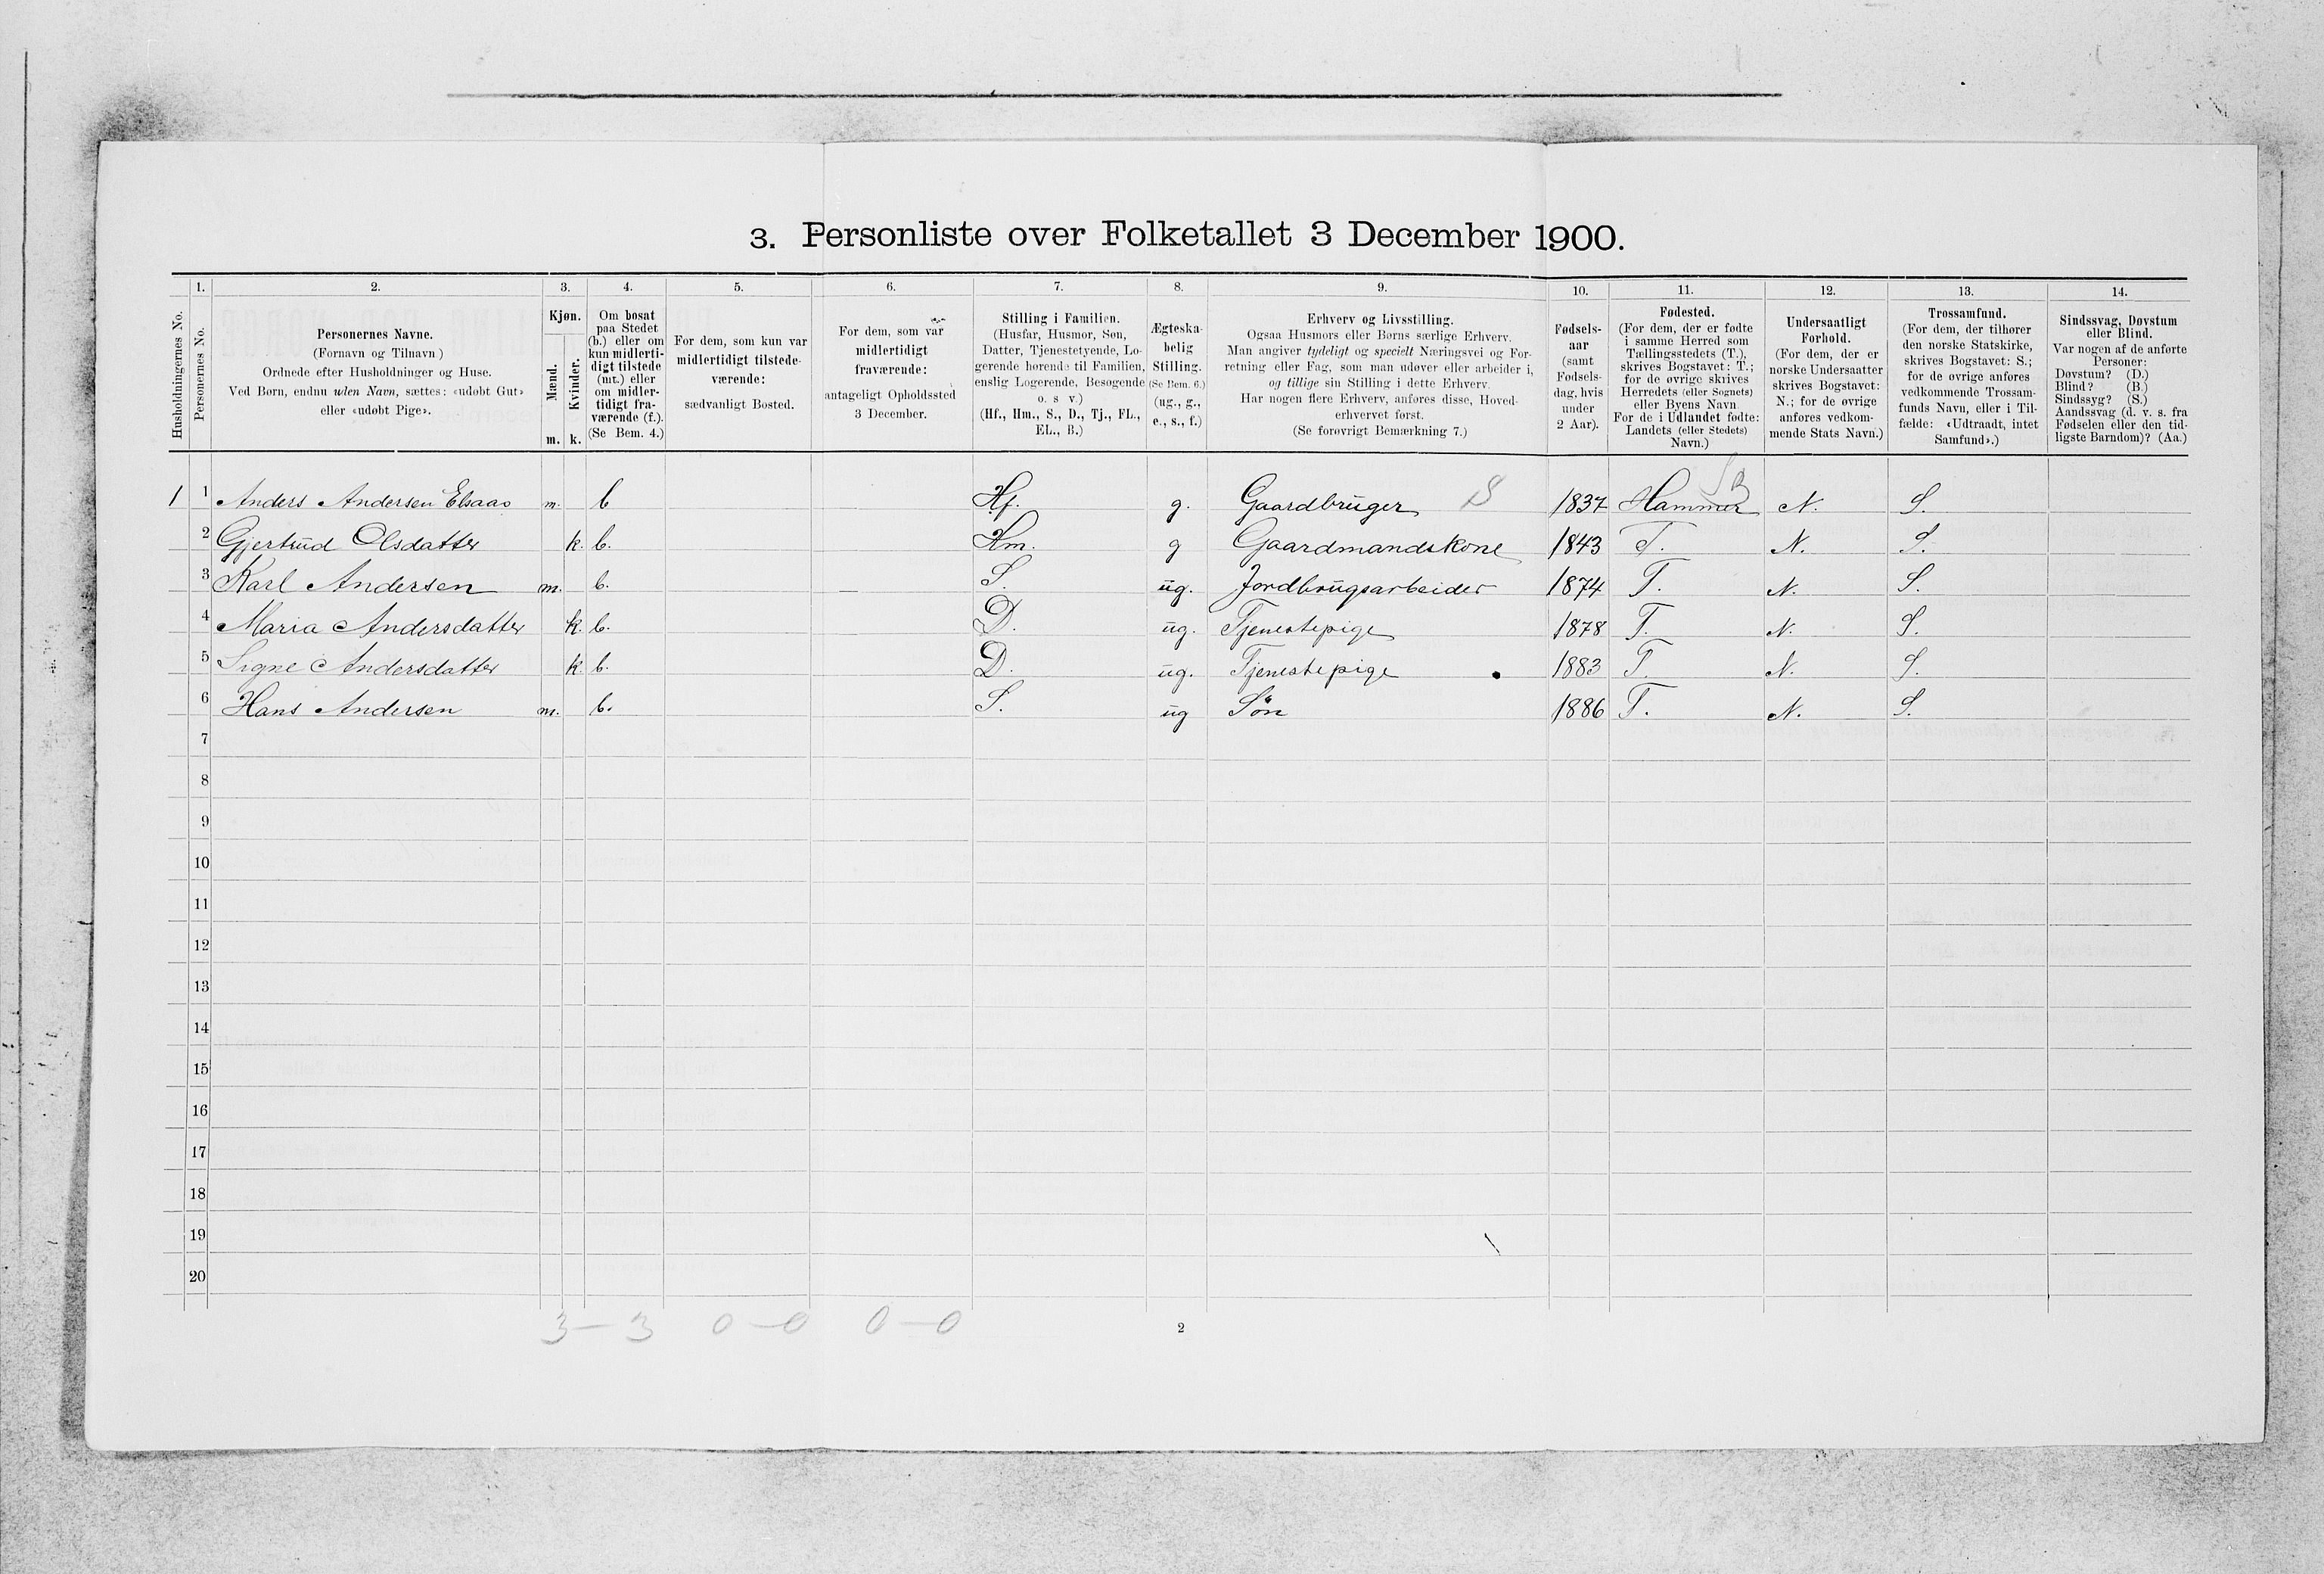 3. Personliste over Folketallet 3 December 1900.
Husholdningernes No.
1. Personernes No.
2. Personernes Navne.
(Fornavn og Tilnavn)
Ordnede efter Husholdninger og Huse.
Ved Børn, endnu uden Navn, sættes: «udøbt Gut»
eller «udøbt Pige».
3. Kjøn.
Mænd. Kvinder.
m. k.
4. Om bosat
paa Stedet
(b.) eller om
kun midlerti-
digt tilstede
(mt.) eller
om midler-
tidigt fra-
værende (f.).
(Se Bem. 4.)
5. For dem, som kun var
midlertidigt tilstede-
værende:
sædvanligt Bosted.
6. For dem, som var
midlertidigt
fraværende:
antageligt Opholdssted
3 December.
7. Stilling i Familien.
(Husfar, Husmor, Søn,
Datter, Tjenestetyende, Lo-
gerende hørende til Familien,
enslig Logerende, Besøgende
o. s v.)
(Hf., Hm., S., D., Tj., FL.,
EL., B.)
8. Ægteska-
belig
Stilling.
(Se Bem. 6.)
(ug., g.,
e., s., f.)
9. Erhverv og Livsstilling.
Ogsaa Husmors eller Børns særlige Erhverv.
Man angiver tydeligt og specielt Næringsvei og For-
retning eller Fag, som man udøver eller arbeider i,
og tillige sin Stilling i dette Erhverv.
Har nogen flere Erhverv, anføres disse, Hoved-
erhvervet først.
(Se forøvrigt Bemærkning 7.)
10. Fødsels-
aar
(samt
Fødsels-
dag, hvis
under
2 Aar).
11. Fødested.
(For dem, der er fødte
i samme Herred som
Tællingsstedets (T.),
skrives Bogstavet: T.;
for de øvrige skrives
Herredets (eller Sognets)
eller Byens Navn
For de i Udlandet fødte:
Landets (eller Stedets)
Navn.)
12. Undersaatligt
Forhold.
(For dem, der er
norske Undersaatter
skrives Bogstavet:
N.; for de øvrige
anføres vedkom-
mende Stats Navn.)
13. Trossamfund.
(For dem, der tilhører
den norske Statskirke,
skrives Bogstavet: S.;
for de øvrige anføres
vedkommende Trossam-
funds Navn, eller i Til-
fælde: «Udtraadt, intet
Samfund».)
14. Sindssvag, Døvstum
eller Blind.
Var nogen af de anførte
Personer:
Døvstum? (D.)
Blind? (B.)
Sindssyg? (S.)
Aandssvag (d. v. s. fra
Fødselen eller den tid-
ligste Barndom)? (Aa.)
1 1 Anders Andersen Elsaas m. b Hf. g. Gaardbruger S 1837 Hammer N. S.
2 Gjertrud Olsdatter k. b. Hm. g Gaardmandskone 1843 T. N. S.
3 Karl Andersen m. b. S. ug. Jordbrugsarbeider 1874 T. N. S.
4 Maria Andersdatter k. b. D. ug. Tjenestepige 1878 T. N. S.
5 Signe Andersdatter k. b. D. ug. Tjenestepige 1883 T. N. S.
6 Hans Andersen m. b. S. ug Søn 1886 T. N. S.
7
8
9
10
11
12
13
14
15
16
17
18
19
20
3 - 3 0 - 0 0 - 0
2